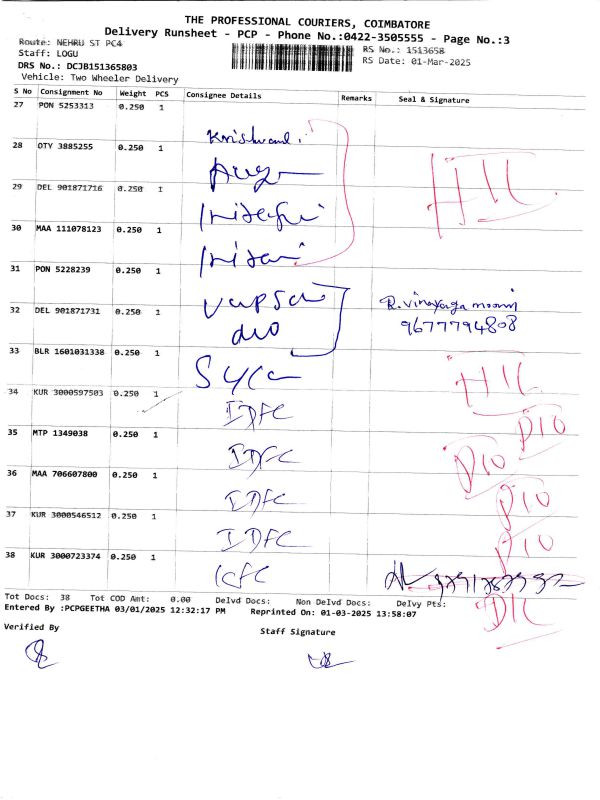 THE PROFESSIONAL COURIERS, COIMBATORE
Delivery Runsheet - PCP - Phone No.:0422-3505555 - Page No.:3
Route: NEHRU ST PC4
Staff: LOGU
DRS No.: DCJB151365803
Vehicle: Two Wheeler Delivery
RS No.: 1513658
RS Date: 01-Mar-2025
S No Consignment No Weight PCS Consignee Details Remarks Seal & Signature
27 PON 5253313 0.250 1
28 OTY 3885255 0.250 1
29 DEL 901871716 0.250 1
30 MAA 111078123 0.250 1
31 PON 5228239 0.250 1
32 DEL 901871731 0.250 1 R. Vinayaga moorni
9677794808
33 BLR 1601031338 0.250 1
34 KUR 3000597503 0.250 1 IDFC
35 MTP 1349038 0.250 1 IDFC
36 MAA 706607800 0.250 1 IDFC
37 KUR 3000546512 0.250 1 IDFC
38 KUR 3000723374 0.250 1
Tot Docs: 38 Tot COD Amt: 0.00 Delvd Docs: Non Delvd Docs: Delvy Pts:
Entered By :PCPGEETHA 03/01/2025 12:32:17 PM Reprinted On: 01-03-2025 13:58:07
Verified By
Staff Signature